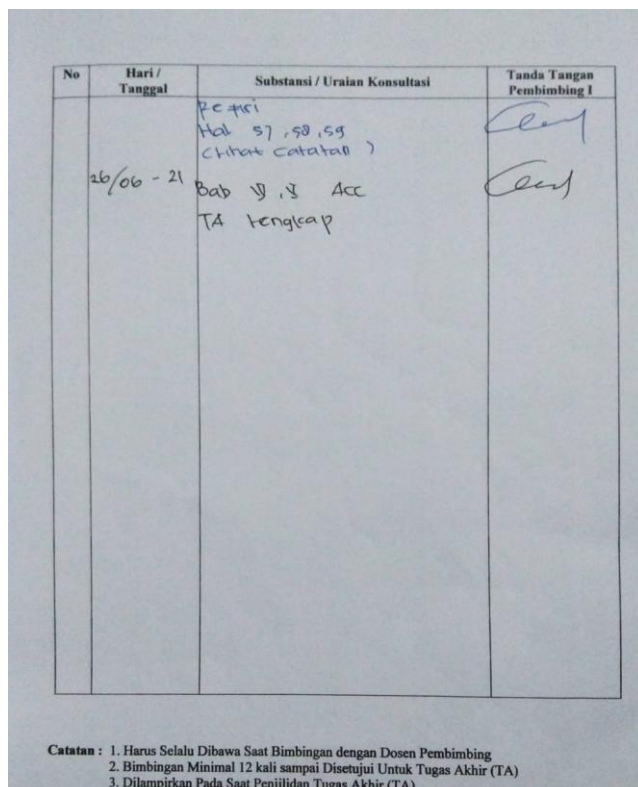 No
Hari /
Tanggal
Substansi / Uraian Konsultasi
Tanda Tangan
Pembimbing I
Hal 57, 58, 59
(Lihat Catatan )
26/06 - 21
Bab IV, V Acc
TA Lengkap
Catatan : 1. Harus Selalu Dibawa Saat Bimbingan dengan Dosen Pembimbing
2. Bimbingan Minimal 12 kali sampai Disetujui Untuk Tugas Akhir (TA)
3. Dilampirkan Pada Saat Penjilidan Tugas Akhir (TA)